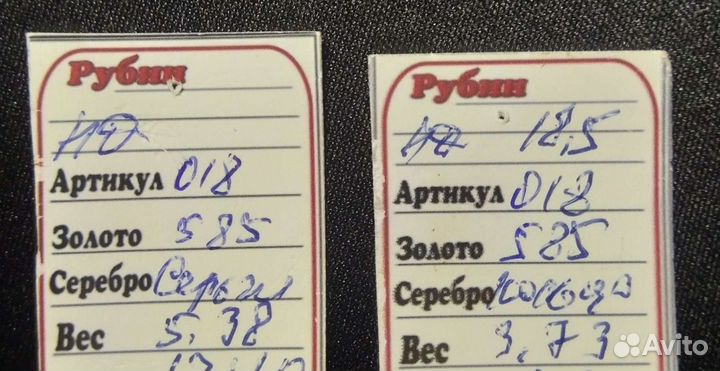 Рубин
НО
Артикул 018
Золото 585
Серебро Серьги
Вес 5,38
Рубин
18,5
Артикул 018
Золото 585
Серебро Кольцо
Вес 3,73
Avito